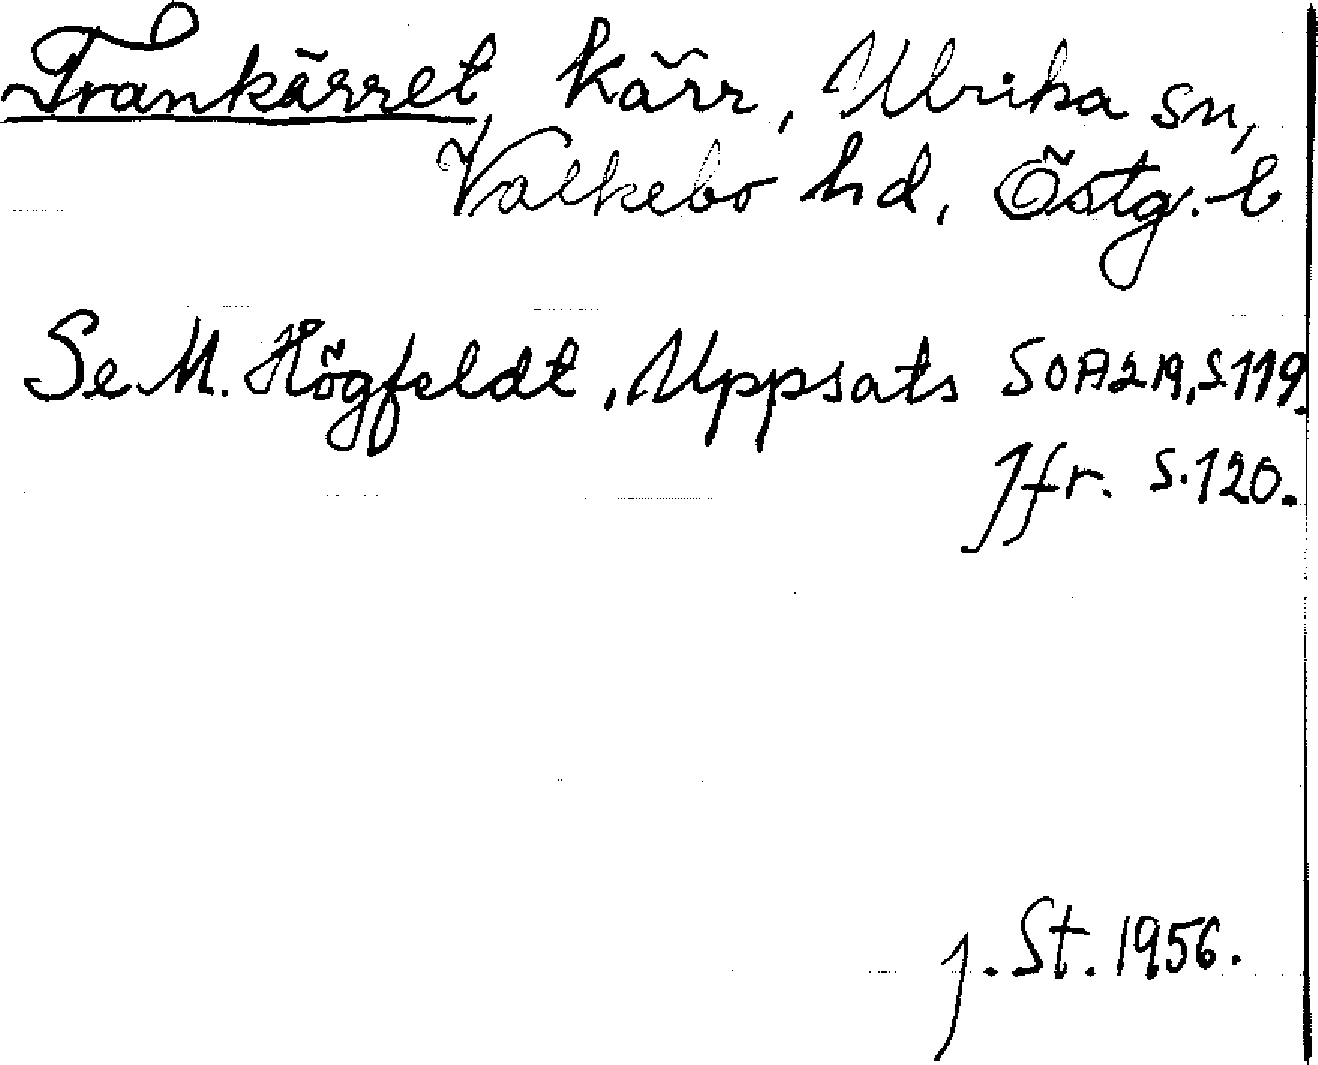 Trankärret, kärr, Ulrika sn,
Valkebo hd, Östg. l
Se M. Högfeldt, Uppsats SOA2A, s.119.
Jfr. s.120.
J. St. 1956.